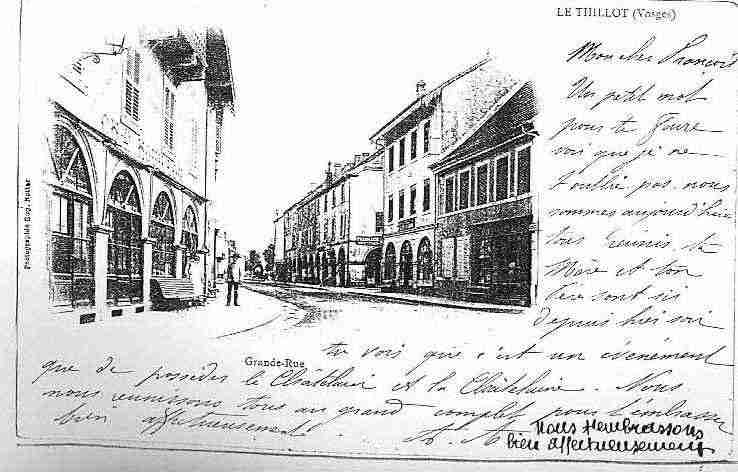 LE THILLOT (Vosges)
Mon cher François
Un petit mot
pour te faire
voir que je ne
t'oublie pas. nous
sommes aujourd'hui
tous reunis ta
Mère et ton
Père sont ici
depuis hier soir
tu vois que c'est un événement
que de posséder le Châtelain et la Châtelaine. Nous
nous reunissons tous au grand complet pour t'embrasser
bien affectueusement.
nous t'embrassons
bien affectueusement
Grande-Rue
Photographie Eug.